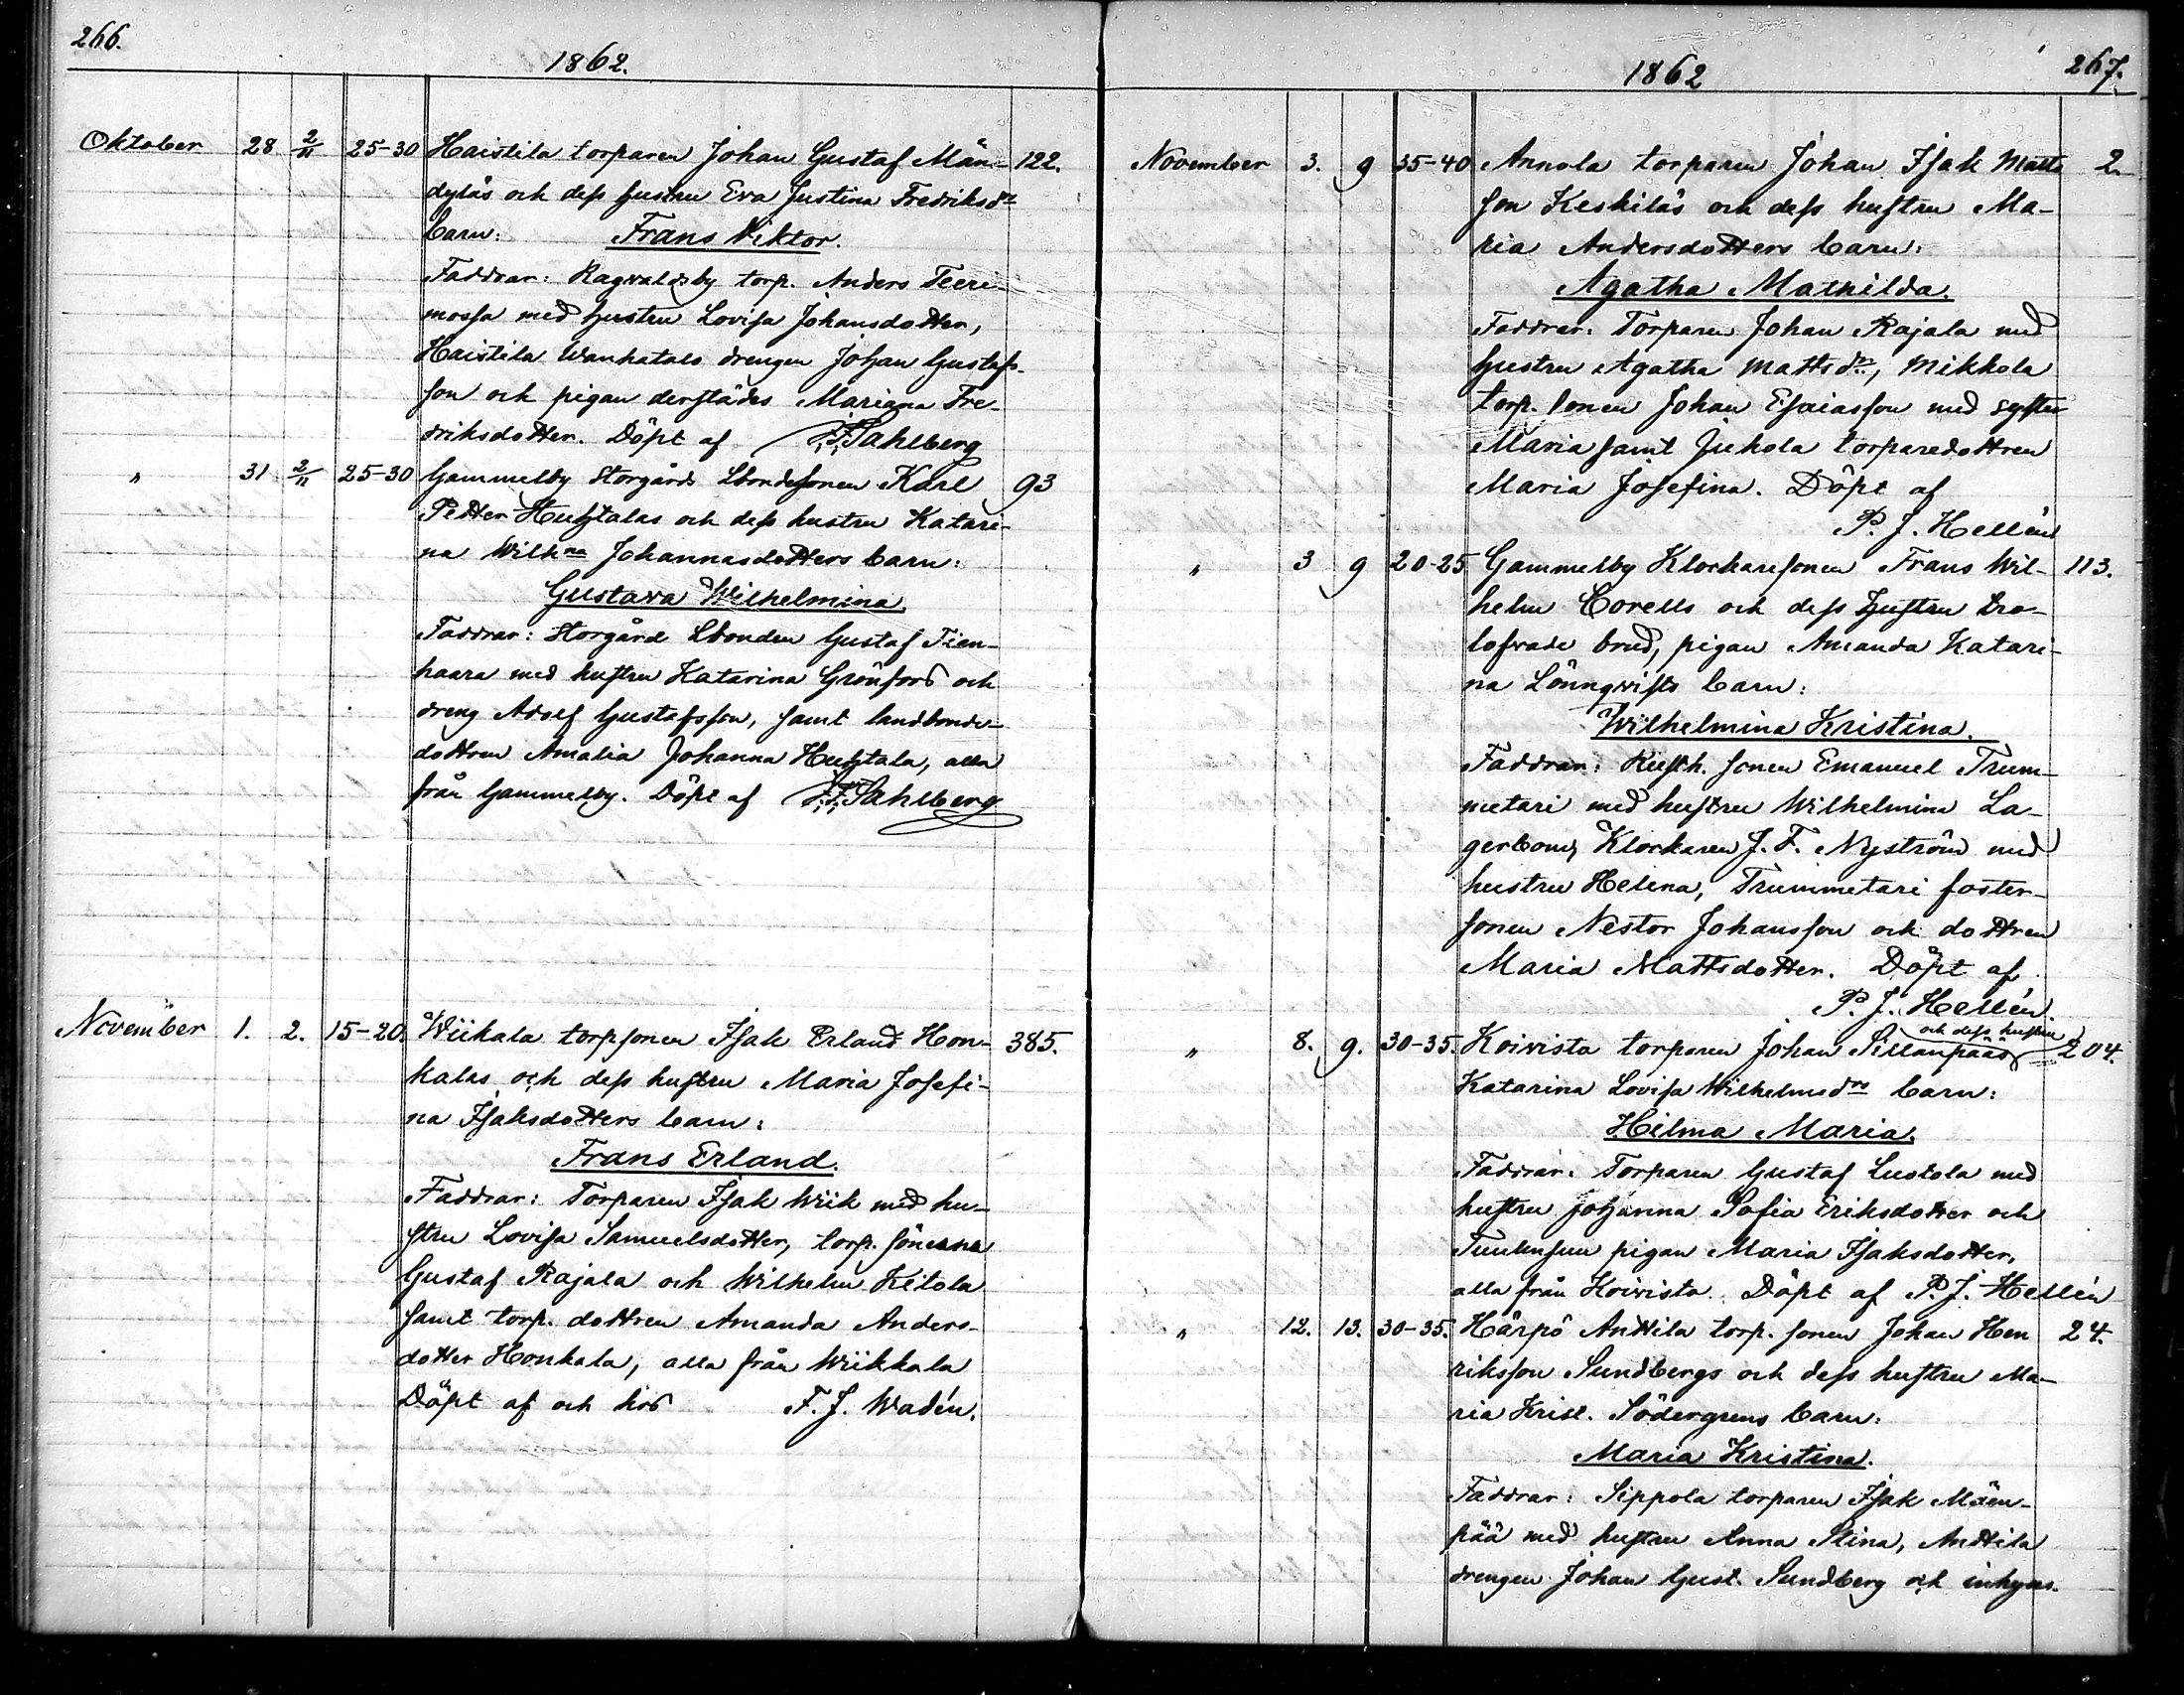 266.
1862.
Oktober 28 2/11 25-30 Haistila torparen Johan Gustaf Män- 122.
dyläs och dess hustru Eva Justina Fredriksdr
barn: Frans Viktor.
Faddrar: Ragvaldsby torp. Anders Teeri-
mossa med hustru Lovisa Johansdotter,
Haistila Wanhatalo drengen Johan Gustafs-
son och pigan derstädes Mariana Fre-
driksdotter. Döpt af F. F. Sahlberg
" 31 2/11 25-30 Gammelby Storgårds Lbondesonen Karl 93
Petter Huhtalas och dess hustru Katari-
na Wilhna Johannasdotters barn:
Gustava Wilhelmina.
Faddrar: Storgård Lbonden Gustaf Tien-
haara med hustru Katarina Grönfors och
dreng Adolf Gustafsson, samt landbonde-
dottren Amalia Johanna Huhtala, alla
från Gammelby. Döpt af F. F. Sahlberg
November 1. 2. 15-20. Wiikala torpsonen Isak Erland Hon- 385.
kalas och dess hustru Maria Josefi-
na Isaksdotters barn:
Frans Erland.
Faddrar: Torparen Isak Wiik med hu-
stru Lovisa Samuelsdotter, torp. sönerna
Gustaf Rajala och Wilhelm Ketola
samt torp. dottren Amanda Anders-
dotter Honkala, alla från Wiikkala
Döpt af och hos F. J. Wadén.
1862
267.
November 3. 9 35-40 Annola torparen Johan Isak Matts 2.
son Keskiläs och dess hustru Ma-
ria Andersdotters barn:
Agatha Mathilda.
Faddrar: Torparen Johan Rajala med
hustru Agatha Mattsdr, Mikkola
torp. sonen Johan Esaiasson med syster
Maria samt Jukola torparedottren
Maria Josefina. Döpt af
P. J. Hellén
" 3 9 20-25 Gammelby Klockaresonen Frans Wil- 113.
helm Corells och dess hustru tro-
lofvade brud, pigan Amanda Katari-
na Lönnqvists barn:
Wilhelmina Kristina.
Faddrar: Rusth. sonen Emanuel Trum-
metari med hustru Wilhelmina La-
gerbom, Klockaren J. F. Nyström med
hustru Helena, Trummetari foster-
sonen Nestor Johansson och dottren
Maria Mattsdotter. Döpt af
P. J. Hellén.
och dess hustru
" 8. 9. 30-35. Koivisto torparen Johan Sillanpääs 204.
Katarina Lovisa Wilhelmsdrs barn:
Hilma Maria.
Faddrar: Torparen Gustaf Luotola med
hustru Johanna Sofia Eriksdotter och
pigan Maria Isaksdotter,
alla från Koivisto. Döpt af P. J. Hellén
" 12. 13. 30-35. Härpö Anttila torp. sonen Johan Hen 24.
riksson Sundbergs och dess hustru Ma-
ria Krist. Södergrens barn:
Maria Kristina.
Faddrar: Sippola torparen Isak Mäen-
pää med hustru Anna Stina, Anttila
drengen Johan Gust. Sundberg och inhyses-